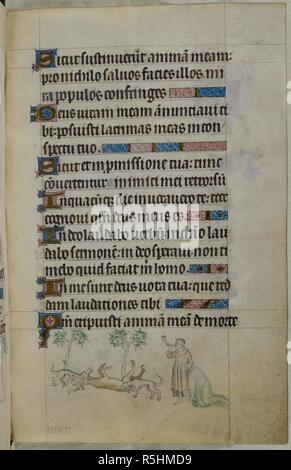 Sicut sustinuerūt animā meam:
pro nichilo saluos facies illos. in i
ra populos confringes
Deus uitam meam annunciaui ti
bi: posuisti lacrimas meas in con
spectu tuo.
Sicut et in pmissione tua: tunc
cōuertentur inimici mei retrorsū
In die inuocauero te: ecce
cognoui deus meus es
In deo laudabo uerbum lau
dabo sermonē: in deo speraui non ti
mebo quid faciat m homo.
In me sunt deus uota tua: que red
dam laudationes tibi
eripuisti animā meā de morte
a
alamy stock photo
R5HMD9
www.alamy.com